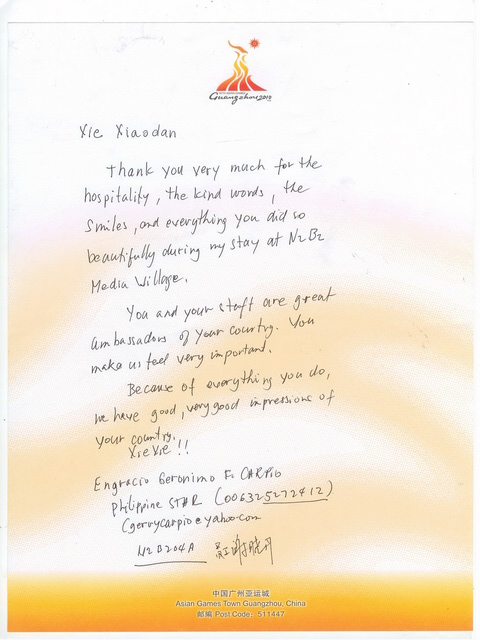 Guangzhou 2010
Xie Xiaodan
Thank you very much for the
hospitality, the kind words, the
smiles, and everything you did so
beautifully during my stay at N2B2
Media Village.
You and your staff are great
ambassadors of your country. You
make us feel very important.
Because of everything you do,
we have good, very good impressions of
your country.
Xie Xie!!
Engracio Geronimo F. CARPIO
Philippine STAR (006325272412)
(gervycarpio@yahoo.com
N2B204A
中国广州亚运城
Asian Games Town Guangzhou, China
邮编 Post Code: 511447